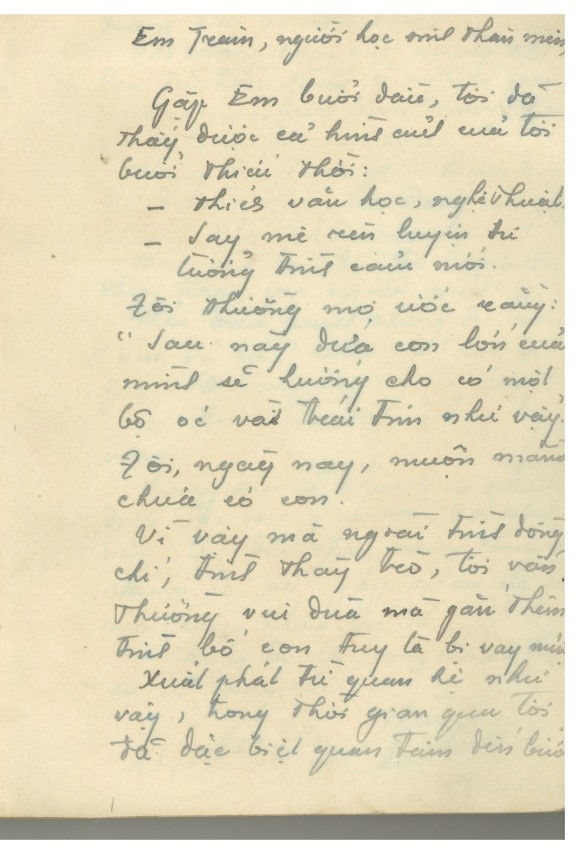 Em Trâm, người học sinh thân mến,
Gặp Em buổi đầu, tôi đã
thấy được cả hình ảnh của tôi
buổi thiếu thời:
– thích văn học, nghệ thuật.
– say mê rèn luyện tư
tưởng tình cảm mới.
Tôi thường mơ ước rằng:
"Sau này đứa con lớn của
mình sẽ hướng cho có một
bộ óc và trái tim như vậy.
Tôi, ngày nay, muộn màng
chưa có con.
Vì vậy mà ngoài tình đồng
chí, tình thày trò, tôi vẫn
thường vui đùa mà gắn thêm
tình bố con tuy là bi vay mượn
Xuất phát từ quan hệ như
vậy, trong thời gian qua tôi
đã đặc biệt quan tâm đến